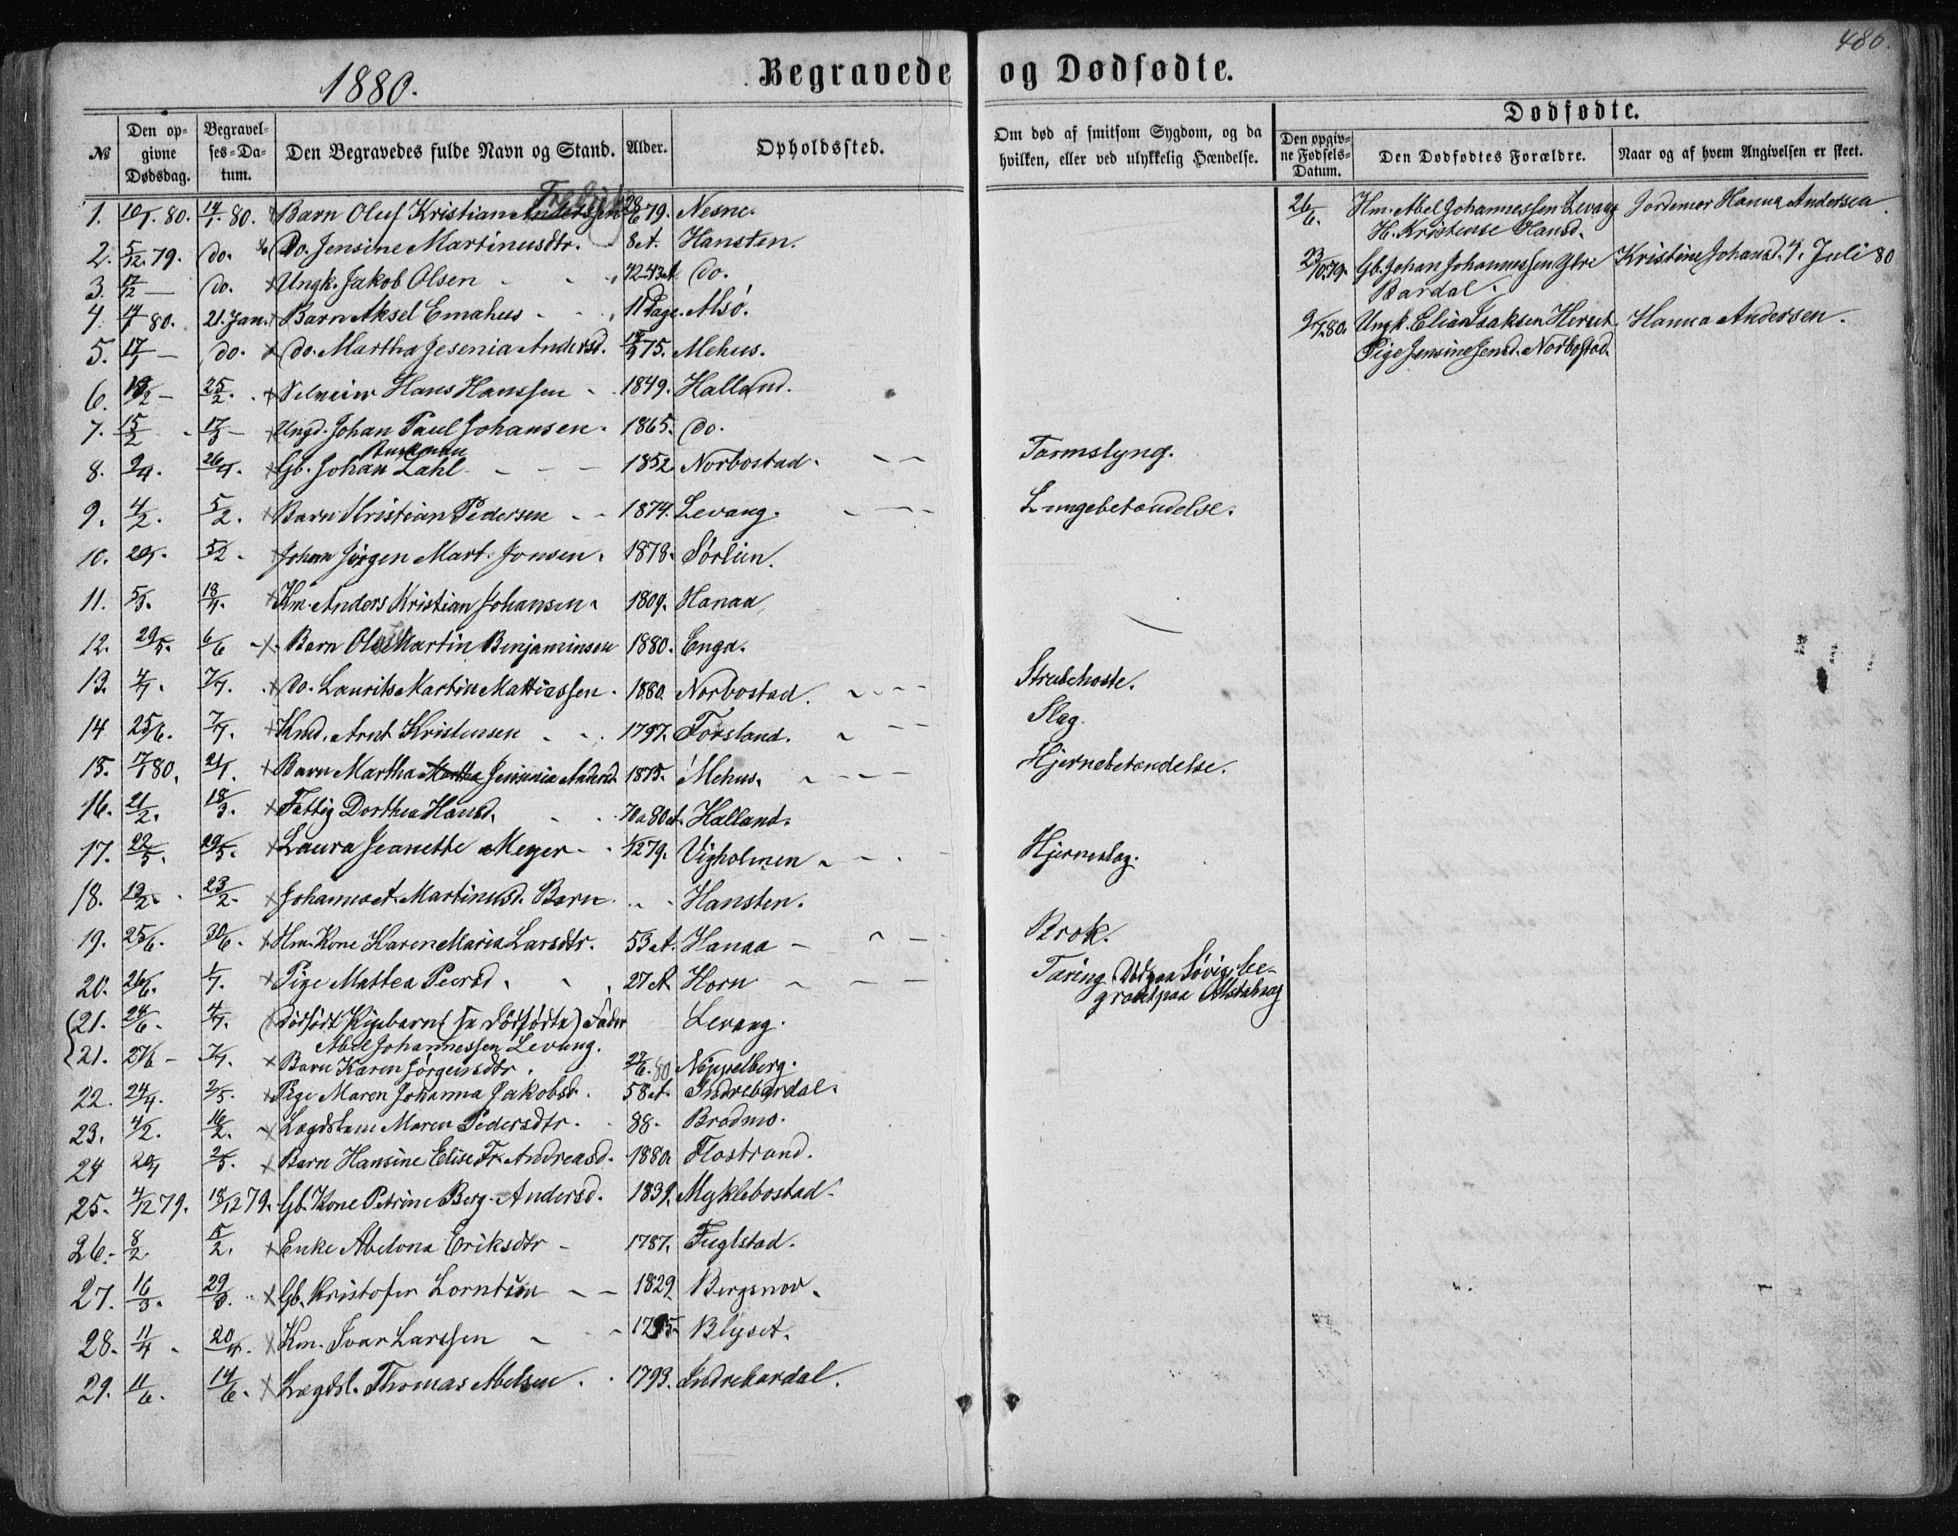 480.
1880.
Begravede og Dødfødte.
№
Den opgivne Dødsdag.
Begravelses-Datum.
Den Begravedes fulde Navn og Stand.
Alder.
Opholdssted.
Om død af smitsom Sygdom, og da hvilken, eller ved ulykkelig Hændelse.
Dødfødte.
Den opgivne Fødsels-Datum.
Den Dødfødtes Forældre.
Naar og af hvem Angivelsen er skeet.
1. 80. 80. Barn Oluf Kristian Anderssen 28/6 79. Nesne.
2. 5/12 79. do. do. Jensine Martinusdtr. 8 A. Hansten.
3. 17/12 — do. Ungk. Jakob Olsen 42-43 A do.
4. 80. 21. Jan. Barn Aksel Emahus 11 Dage. Alsø.
5. 17/1 — do. do. Martha Jesenia Andersd. 75. Mehus.
6. — 25/2. Selveier Hans Hanssen 1849. Halland.
7. 15/2 17/3 — Ungd. Johan Paul Johansen. 1865. do.
8. 26/4. Gb. Johan Zahl 1852 Norbostad. Tarmslyng.
9. 4/2. 5/2. Barn Kristian Pedersen 1874. Levang. Lungebetændelse.
10. 5/2. Johan Jørgen Mart. Jonsen. 1878. Sørlien.
11. 5/3. 18/4. Km. Anders Kristian Johansen. 1809. Hanaa
12. 29/5. 6/6 Barn Ole Martin Benjaminsen 1880. Enga.
13. 4/7. 7/7. do. Laurits Martin Mattiassen. 1880. Norbostad. Strubehoste.
14 25/6. 7/7. Arnt Kristensen 1797. Forsland. Slag.
15. 17/1 80. 21/1. Barn Martha Jensenia Andersd. 1875. Mehus. Hjernebetændelse.
16. 21/2. 18/3. Fattig Dorthea Hansd. 70 a 80 A. Halland.
17. 22/5. 29/5. Laura Jeanette Meyer 79. Vigholmen Hjerneslag.
18. 23/2. Martinusd. Barn Hansten.
19. 25/6. 30/6. Hm. Kone Karen Maria Larsdtr. 53 A. Hanaa Brok.
20. 26/6. 1/7. Pige Mattea Peersd. 27 A Horn Tæring. Død paa Søvig, be-
gravet paa Alstahoug
21. 24/6. 4/7. Dødfødt Pigebarn (se Dødfødte) Fader Levang.
Abel Johannessen Levang.
21. 27/6 — Barn Karen Jørgensdtr. 80 Nippelberg.
22. 24/4. 2/5. Pige Maren Johanna Jakobsd. 58 A. Indrebardal.
23. 4/2. 16/2. Lægdslem Maren Pedersdtr. 88. Bradmo.
24 2/5. Barn Hansine Elise Fr. Andreasd. 1880. Flostrand.
25. 4/12 79. 18/12 79. Gb. Kone Petrine Berg. Andersd. 1839. Myklebostad.
26. 8/2. 15/2. Enke Abelona Eriksdtr 1787. Fuglstad.
27. 16/3. 29/3. Gb. Kristofer Lorntsen 1829. Bergsnov.
28. 11/4 20/4. Km. Ivar Larssen Blyset.
29. 11/6. 14/6. Lægdsl. Thomas Abelsen 1793. Indrebardal.
26/6. Hm. Abel Johannessen Levang Jordemor Hanna Andersen.
H. Kristense Hansd.
79. Gb. Johan Johannessen Ytre Kristine Johansd. 4. Juli 80
Bardal.
80. Ungk. Elias Isaksen Herset Hanna Andersen.
Pige Jensine Jensd. Norbostad.